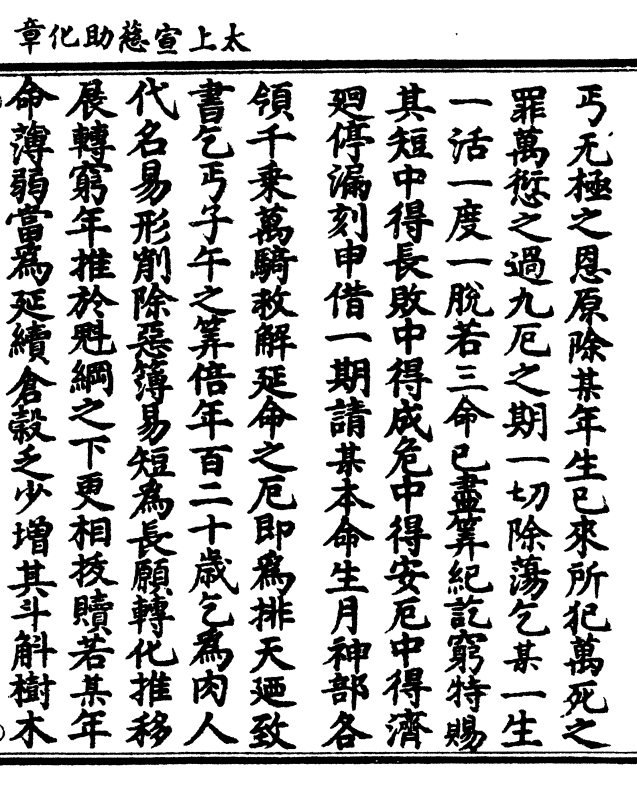 太上宣慈助化章
丐无極之恩原除某年生已來所犯萬死之
罪萬愆之過九厄之期一切除蕩乞某一生
一活一度一脫若三命已盡筭紀訖窮特賜
其短中得長敗中得成危中得安厄中得濟
廻停漏刻申借一期請某本命生月神部各
領千乘萬騎救解延命之厄即爲排天廼致
書乞丐子午之筭倍年百二十歲乞爲肉人
代名易形削除惡簿易短爲長願轉化推移
展轉窮年推於魁綱之下更相拔贖若某年
命薄弱當爲延續倉穀乏少增其斗斛樹木